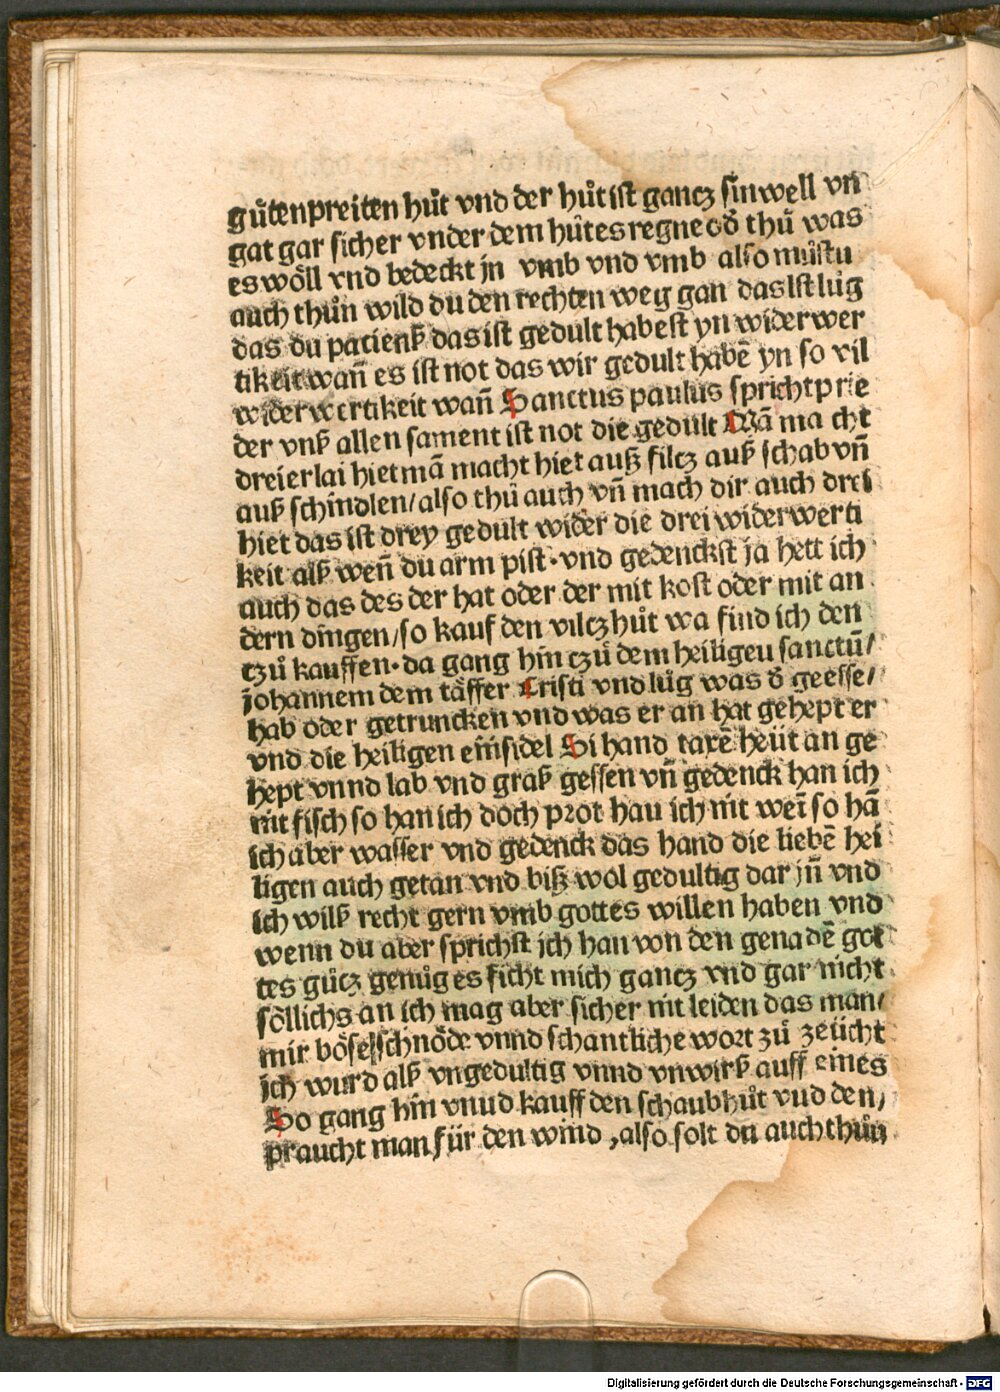 gůtenpreiten hůt vnd der hůt ist gancz sinwell vn̄
gat gar sicher vnder dem hůtes regne od̕ thů was
es wöll vnd bedeckt jn vmb vnd vmb also můstu
auch thůn wild du den rechten weg gan das Ist lůg
das du pacienß das ist gedult habest yn wider wer
tikeit wan̄ es ist not das wir gedult habē yn so vil
wider wertikeit wan̄ Sanctus paulus spricht prie
der vnß allen sament ist not die gedult Mā ma cht
dreierlai hiet mā macht hiet auß filcz auß schab vn̄
auß schindlen/also thů auch vn̄ mach dir auch drei
hiet das ist drey gedult wider die drei widerwerti
keit alß wen̄ du arm pist·vnd gedenckst ja hett ich
auch das des der hat oder der mit kost oder mit an
dern dingen/so kauf den vilczhůt wa find ich den
czů kauffen·da gang hin czů dem heiligeu sanctū/
johannem dem täffer Cristi vnd lůg was d̕ geesse/
hab oder getruncken vnd was er an hat gehept er
vnd die heiligen einsidel Si hand raxē heüt an ge
hept vnnd lab vnd graß gessen vn̄ gedenck han ich
nit fisch so han ich doch prot hau ich nit wei̅ so hā
ich aber wasser vnd gedenck das hand die liebē hei
ligen auch getan vnd biß wol gedultig dar jn̄ vnd
ich wilß recht gern vmb gottes willen haben vnd
wenn du aber sprichst ich han von den genadē got
tes gůcz genůg es ficht mich gancz vnd gar nicht
söllichs an ich mag aber sicher nit leiden das man/
mir böse schnöde vnnd schantliche wort zů zeücht
ich wurd alß vngedultig vnnd vnwirß auff eines
So gang hin vnud kauff den schaubhůt vud den/
praucht man für den wind,also solt du auch thůn